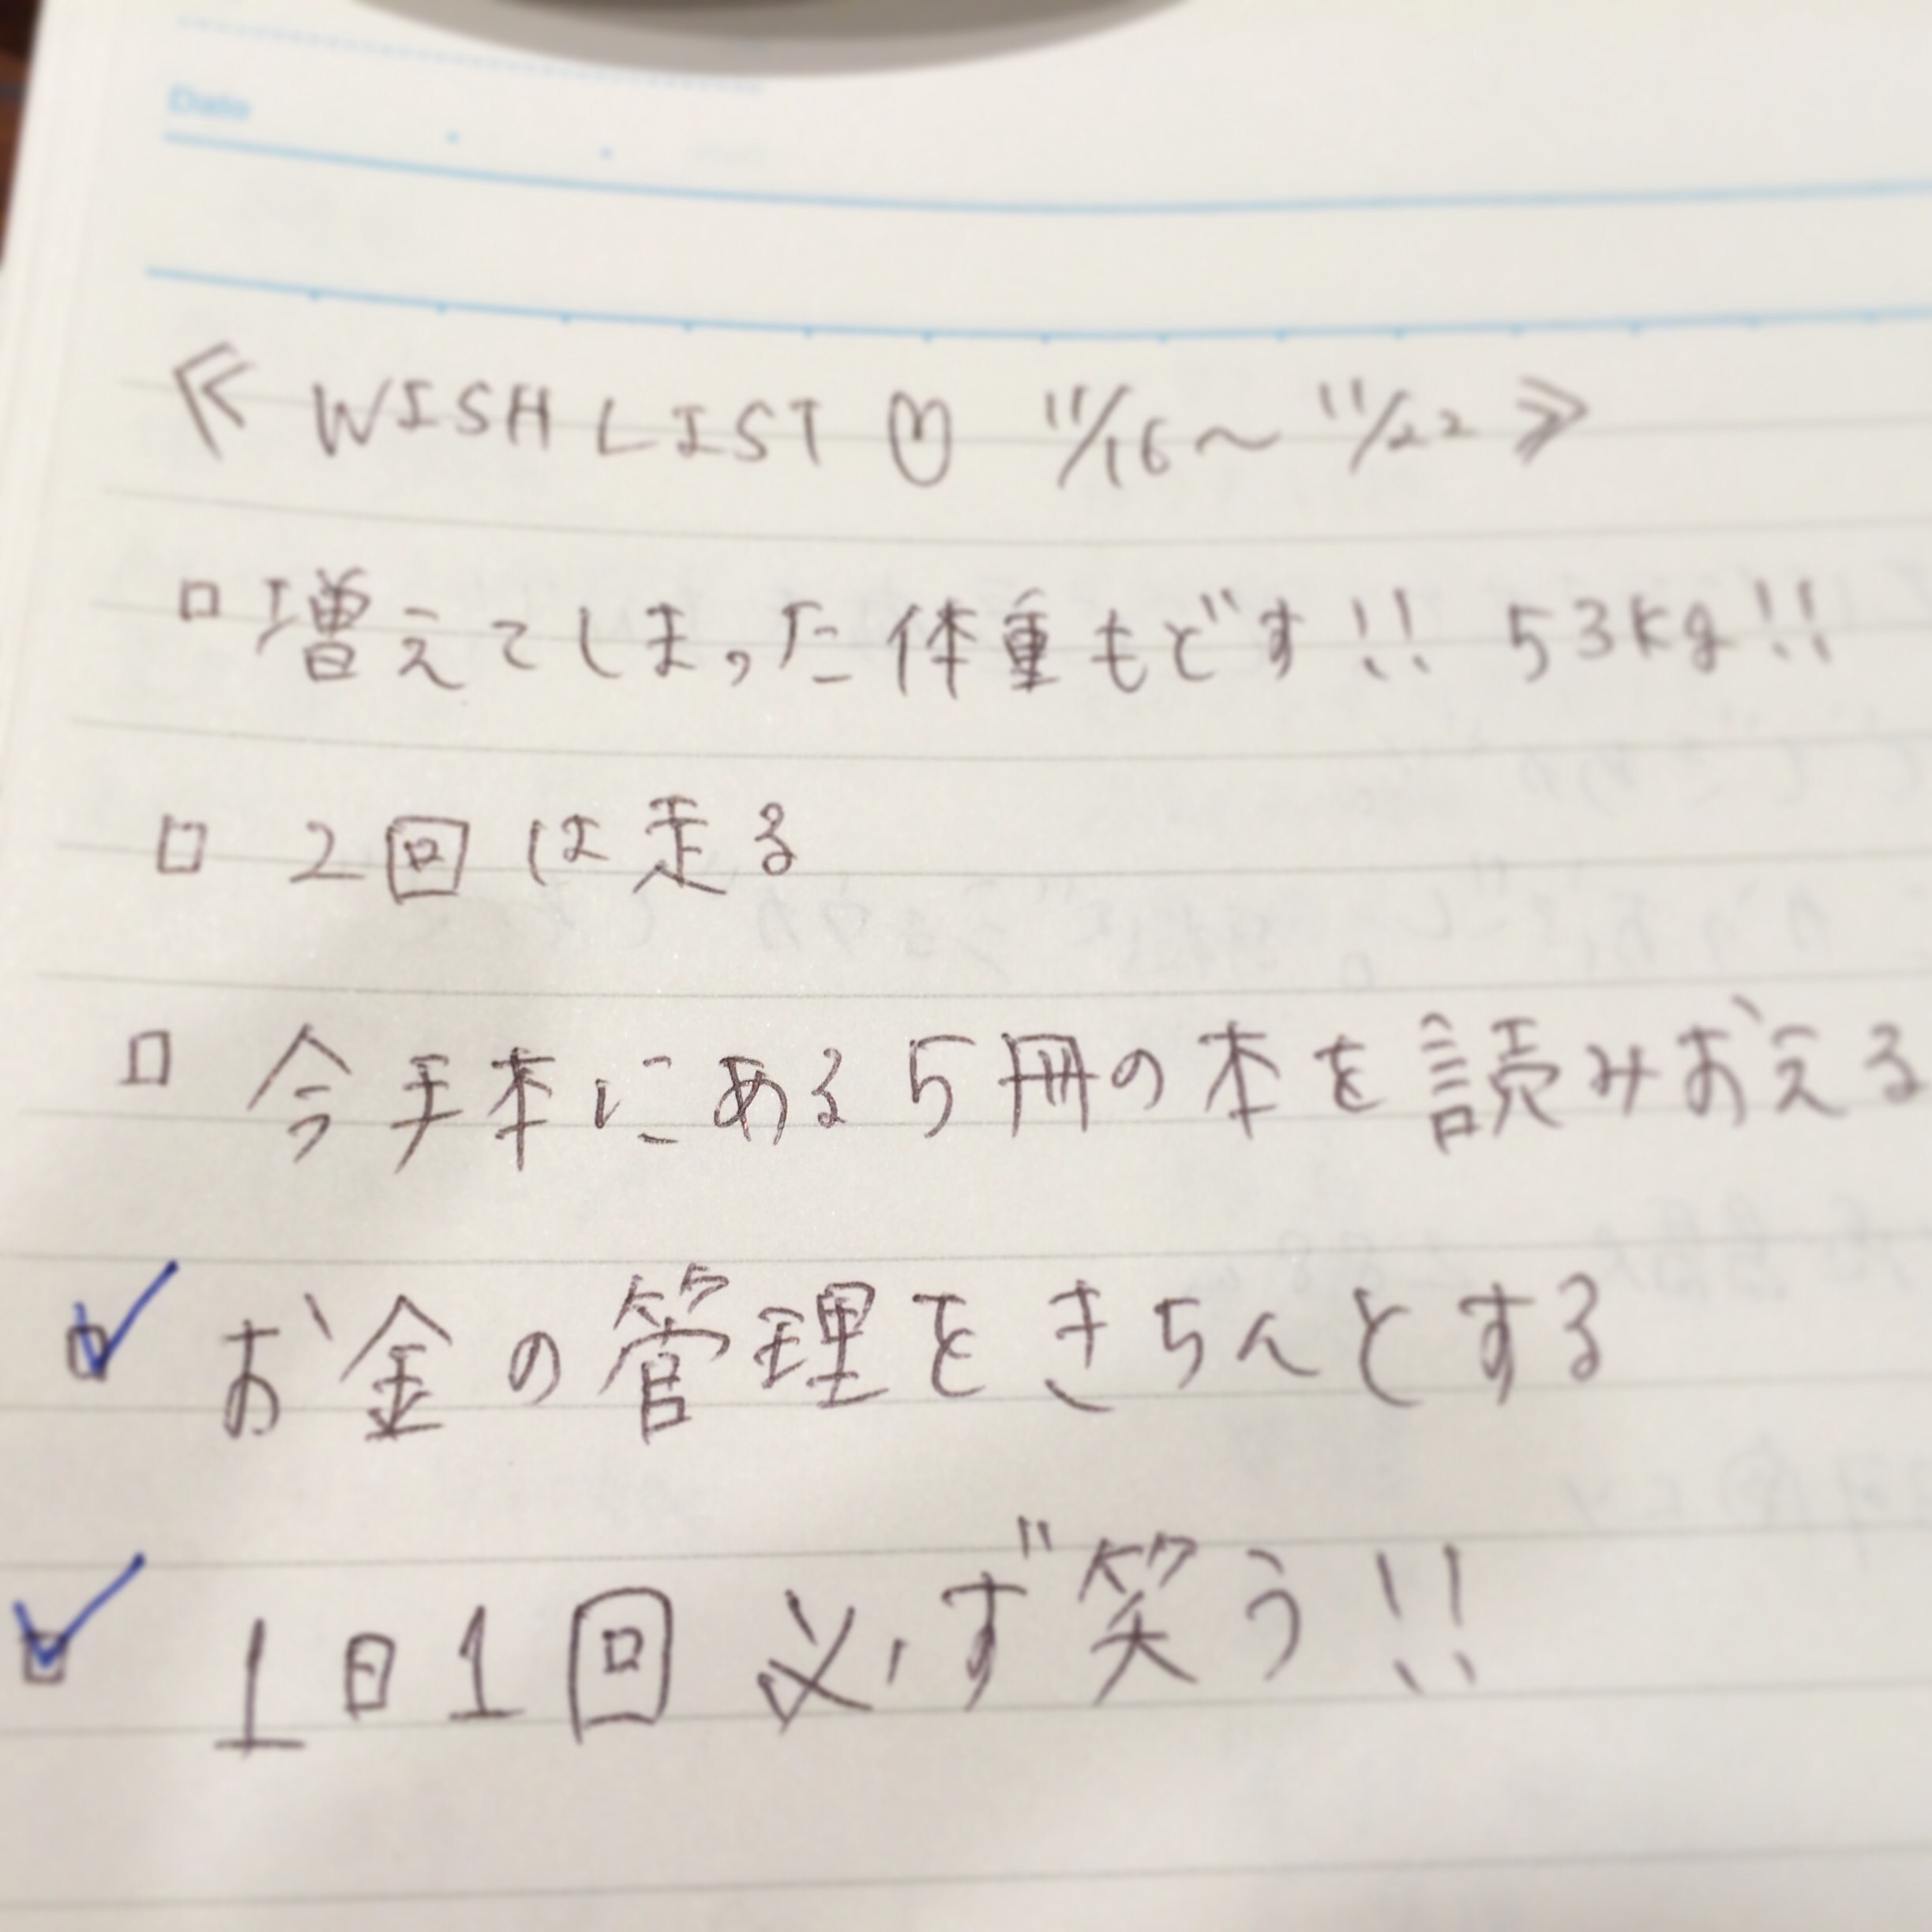 Date
≪ WISH LIST ♡ 11/16〜11/22 ≫
□ 増えてしまった体重もどす!! 53kg!!
□ 2回は走る
□ 今手本にある5冊の本を読みおえる
☑ お金の管理をきちんとする
☑ 1日1回必ず笑う!!